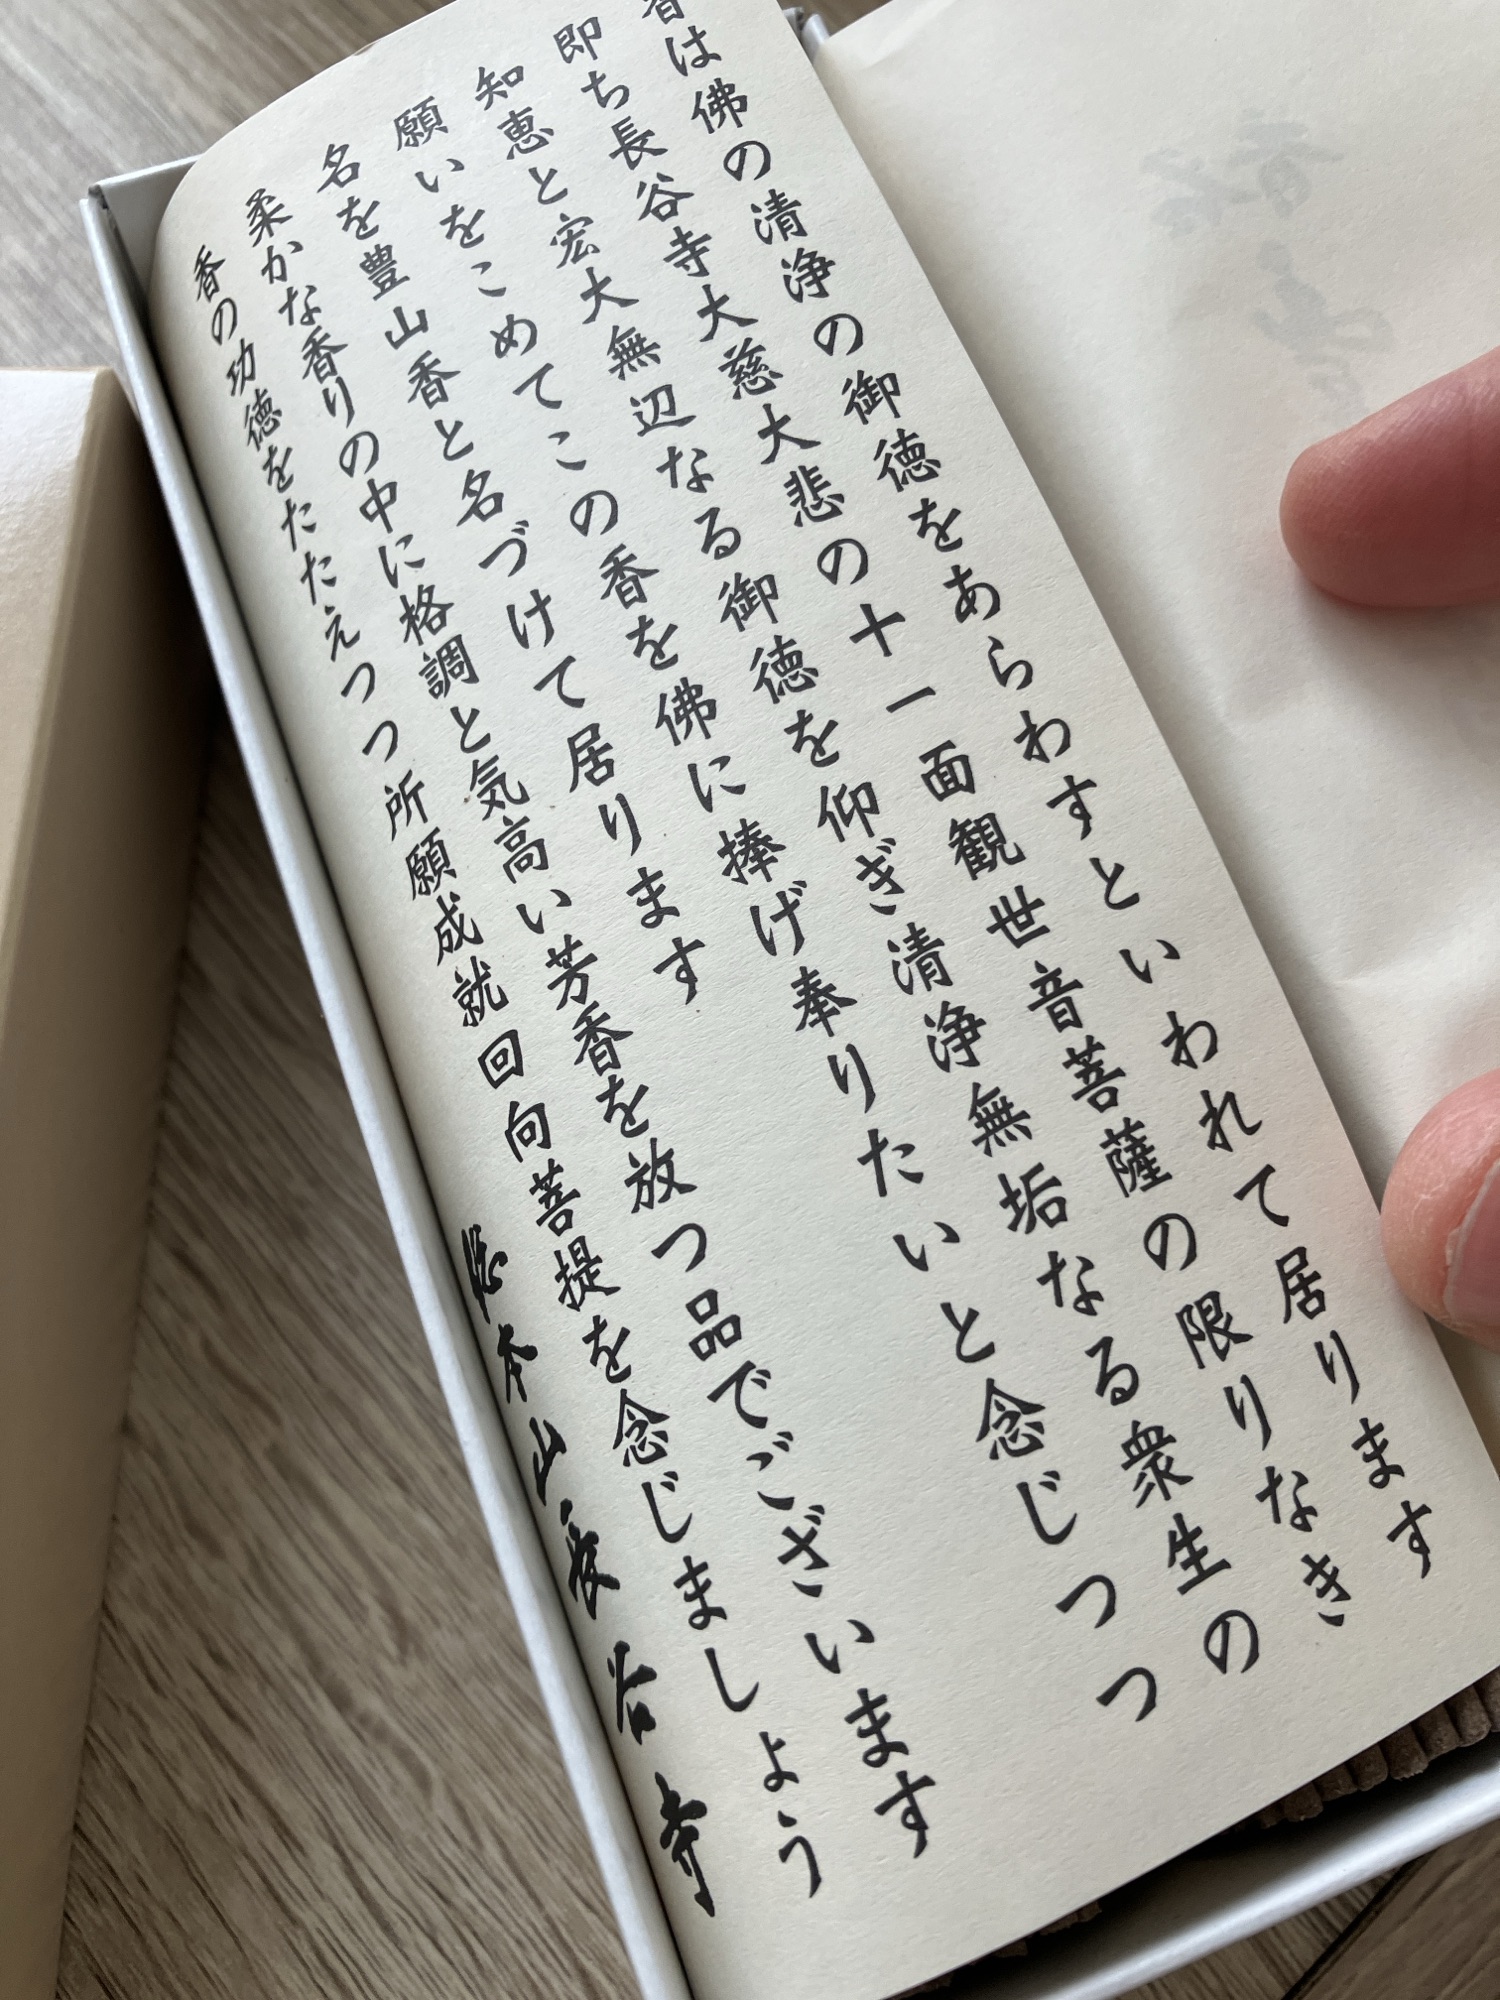 香は佛の清浄の御徳をあらわすといわれて居ります
即ち長谷寺大慈大悲の十一面観世音菩薩の限りなき
知恵と宏大無辺なる御徳を仰ぎ清浄無垢なる衆生の
願いをこめてこの香を佛に捧げ奉りたいと念じつつ
名を豊山香と名づけて居ります
柔かな香りの中に格調と気高い芳香を放つ品でございます
香の功徳をたたえつつ所願成就回向菩提を念じましょう
総本山長谷寺